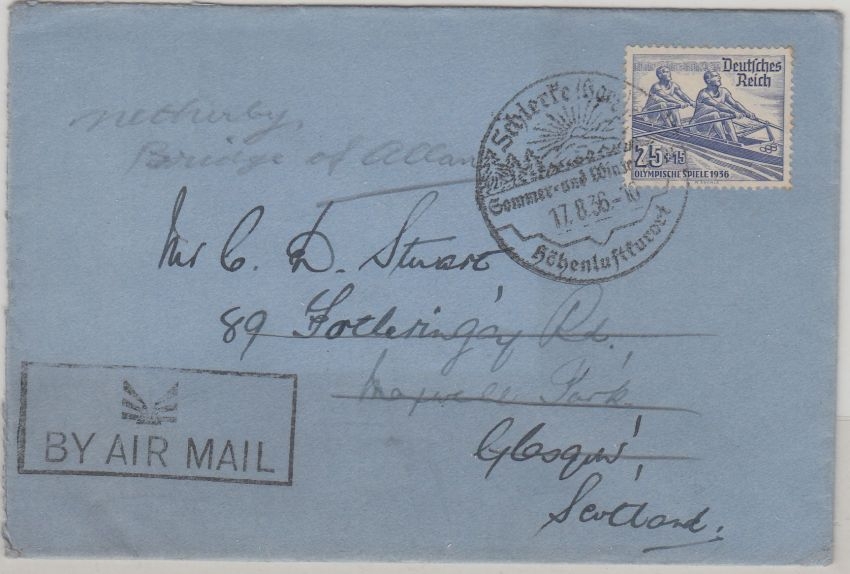 Netherby,
Bridge of Allan
Deutsches
Reich
25+15
OLYMPISCHE SPIELE 1936
Schierke
Sommer- und
17.8.36-10
Höhenluftkurort
Mr C. D. Stuart
89 Fotheringay Rd.
Maxwell Park
Glasgow,
Scotland.
BY AIR MAIL